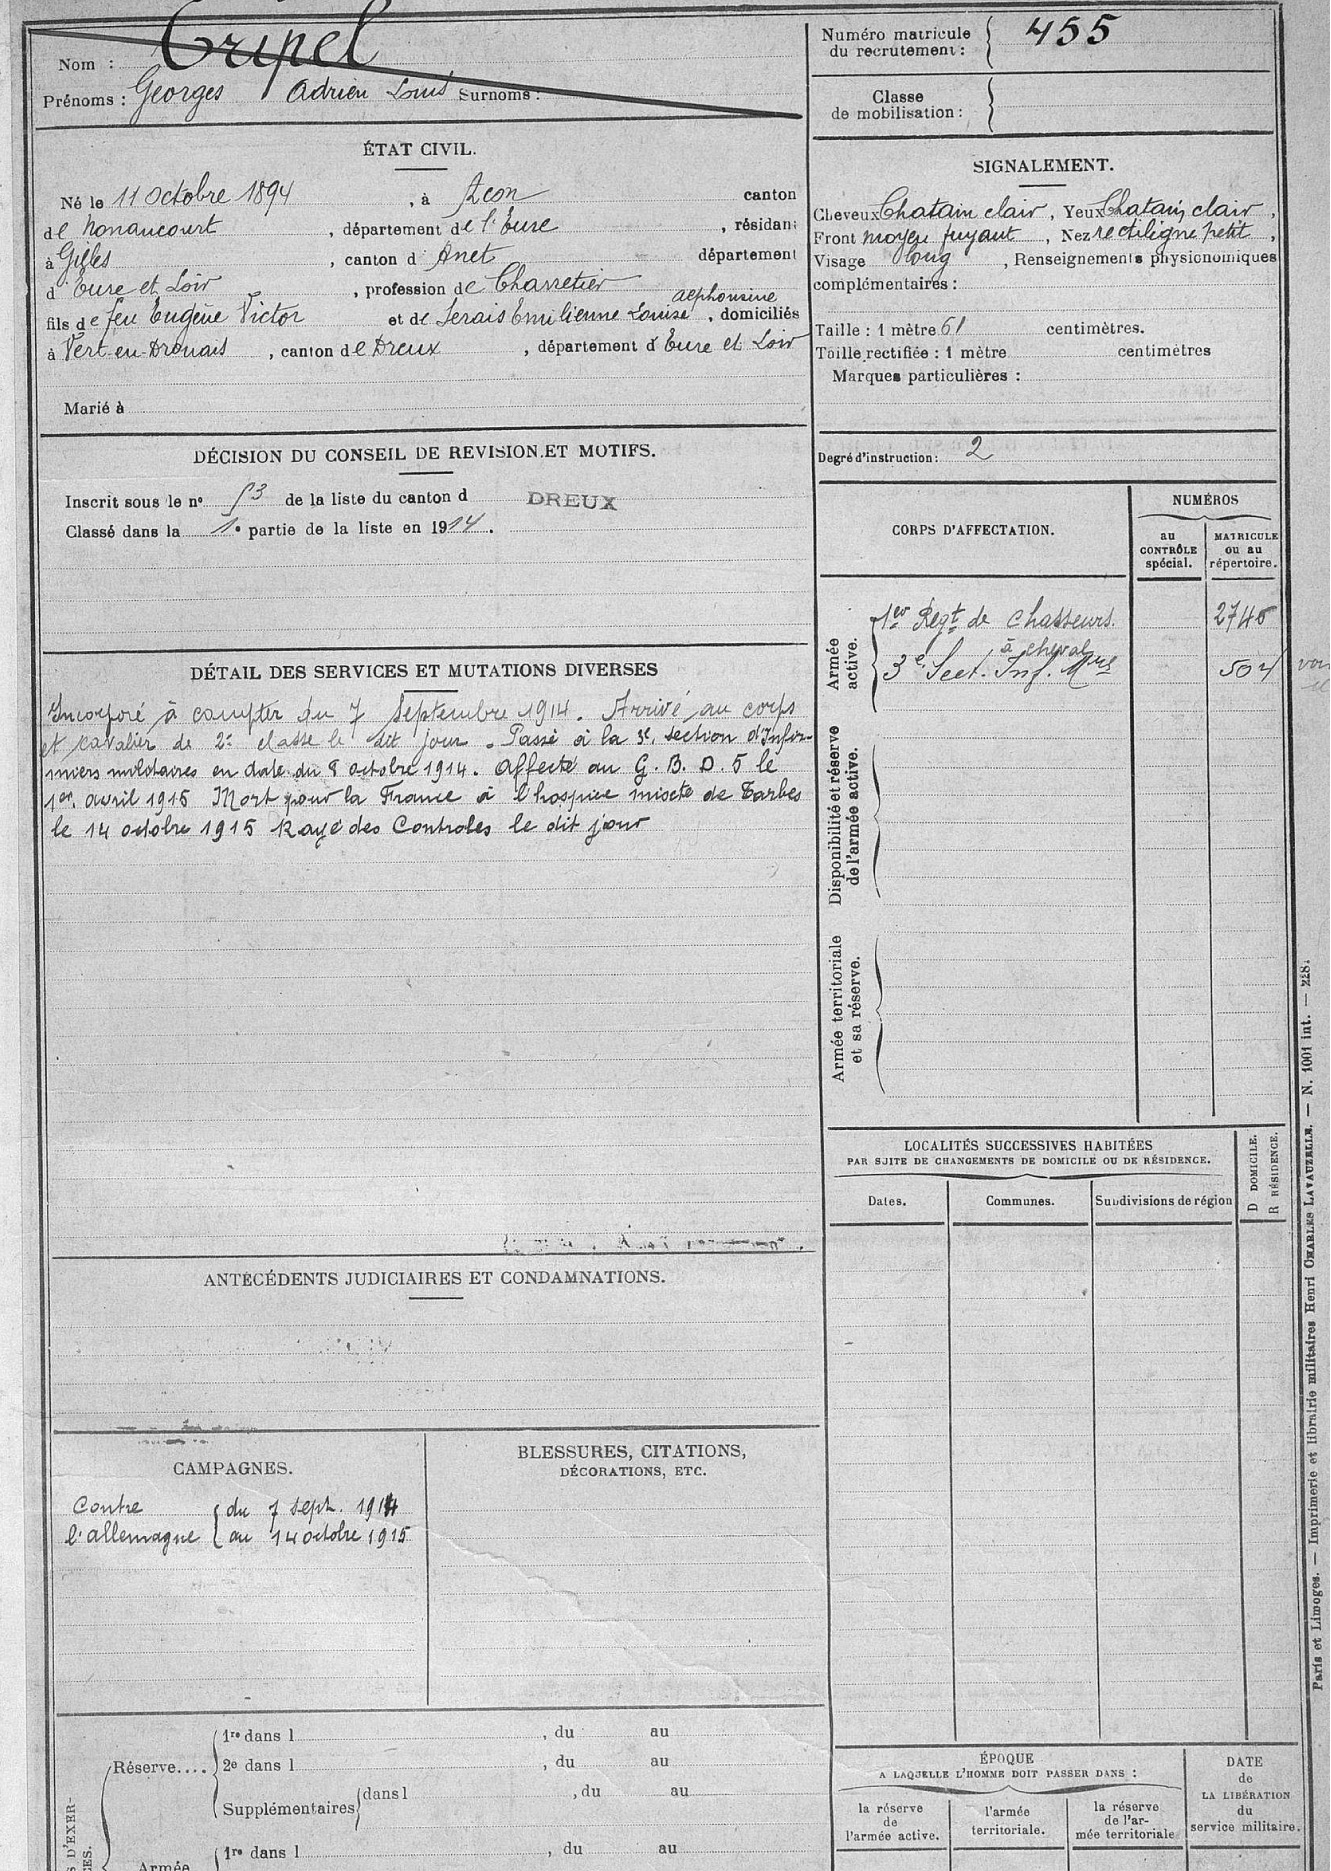 Nom : Tripel
Prénoms : Georges Adrien Louis Surnoms :
Numéro matricule du recrutement : 455
Classe de mobilisation :
ÉTAT CIVIL.
Né le 11 octobre 1894, à Acon canton
de Nonancourt, département de l'Eure, résidant
à Gilles, canton d'Anet département
d'Eure et Loir, profession de Charretier
alphonsine
fils de feu Eugène Victor et de Lerais Emilienne Louise, domiciliés
à Vert en Drouais, canton de Dreux, département d'Eure et Loir
Marié à
SIGNALEMENT.
Cheveux Chatain clair, Yeux Chatain clair,
Front moyen fuyant, Nez rectiligne petit,
Visage long, Renseignements physionomiques
complémentaires :
Taille : 1 mètre 61 centimètres.
Taille rectifiée : 1 mètre centimètres
Marques particulières :
Degré d'instruction : 2
DÉCISION DU CONSEIL DE REVISION ET MOTIFS.
Inscrit sous le nº 53 de la liste du canton d DREUX
Classé dans la 1e partie de la liste en 1914.
DÉTAIL DES SERVICES ET MUTATIONS DIVERSES
Incorporé à compter du 7 Septembre 1914. Arrivé au corps
et cavalier de 2e classe le dit jour. Passé à la 3e section d'Infir-
miers militaires en date du 8 octobre 1914. affecté au G. B. D. 5 le
1er avril 1915 Mort pour la France à l'hospice mixte de Tarbes
le 14 octobre 1915 Rayé des Controles le dit jour
CORPS D'AFFECTATION.
NUMÉROS
au CONTRÔLE spécial.
MATRICULE ou au répertoire.
Armée active.
1er Regt de Chasseurs 2746
à cheval
3e Sect. Inf. Mres 504
Disponibilité et réserve de l'armée active.
Armée territoriale et sa réserve.
LOCALITÉS SUCCESSIVES HABITÉES
PAR SUITE DE CHANGEMENTS DE DOMICILE OU DE RÉSIDENCE.
Dates. Communes. Subdivisions de région
D DOMICILE.
R RÉSIDENCE.
ANTÉCÉDENTS JUDICIAIRES ET CONDAMNATIONS.
CAMPAGNES.
Contre du 7 sept. 1914
l'allemagne au 14 octobre 1915
BLESSURES, CITATIONS,
DÉCORATIONS, ETC.
1re dans l , du au
Réserve.... 2e dans l , du au
Supplémentaires dans l , du au
1re dans l , du au
Armée
S D'EXER-
CES.
ÉPOQUE
A LAQUELLE L'HOMME DOIT PASSER DANS :
la réserve de l'armée active.
l'armée territoriale.
la réserve de l'armée territoriale
DATE
de
LA LIBÉRATION
du
service militaire.
Paris et Limoges. — Imprimerie et librairie militaires Henri CHARLES LAVAUZELLE. — N. 1001 int. — 228.